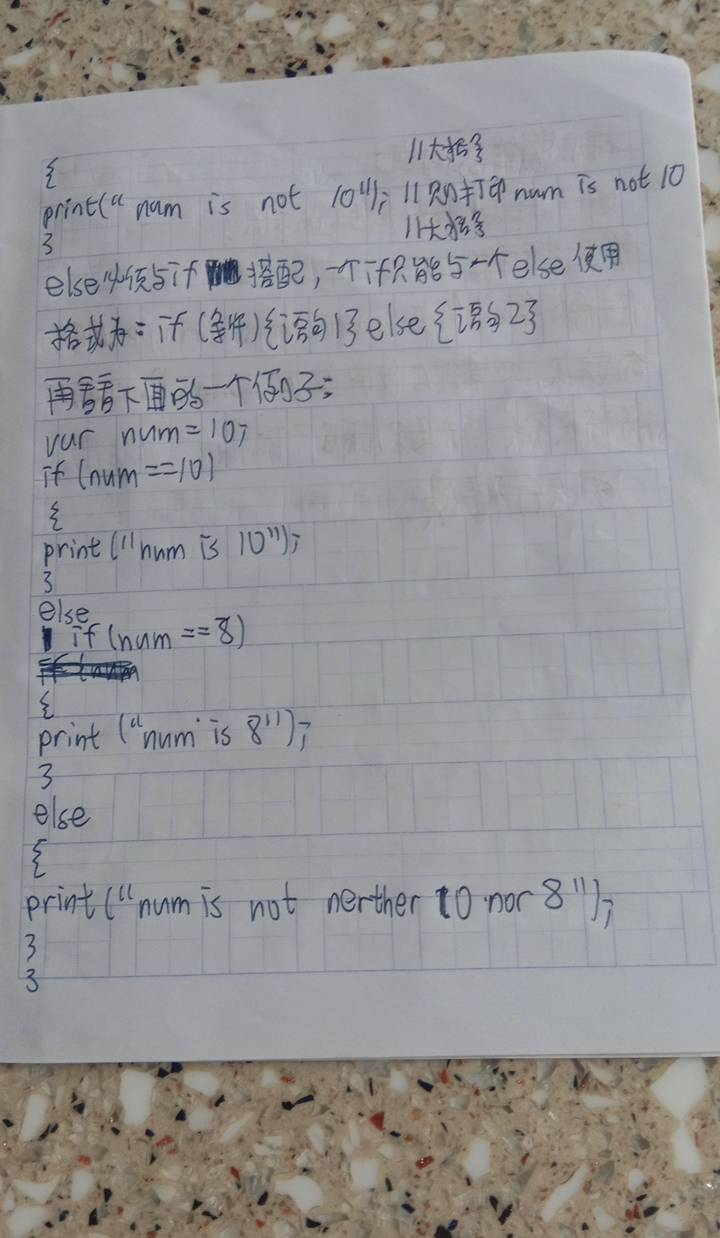 { //大括号
print("num is not 10"); //则打印num is not 10
} //大括号
else必须与if搭配,一个if只能与一个else使用
格式为:if(条件){语句1}else{语句2}
再看看下面的一个例子:
var num=10;
if(num==10)
{
print("num is 10");
}
else
if(num==8)
{
print("num is 8");
}
else
{
print("num is not nerther 10 nor 8");
}
}